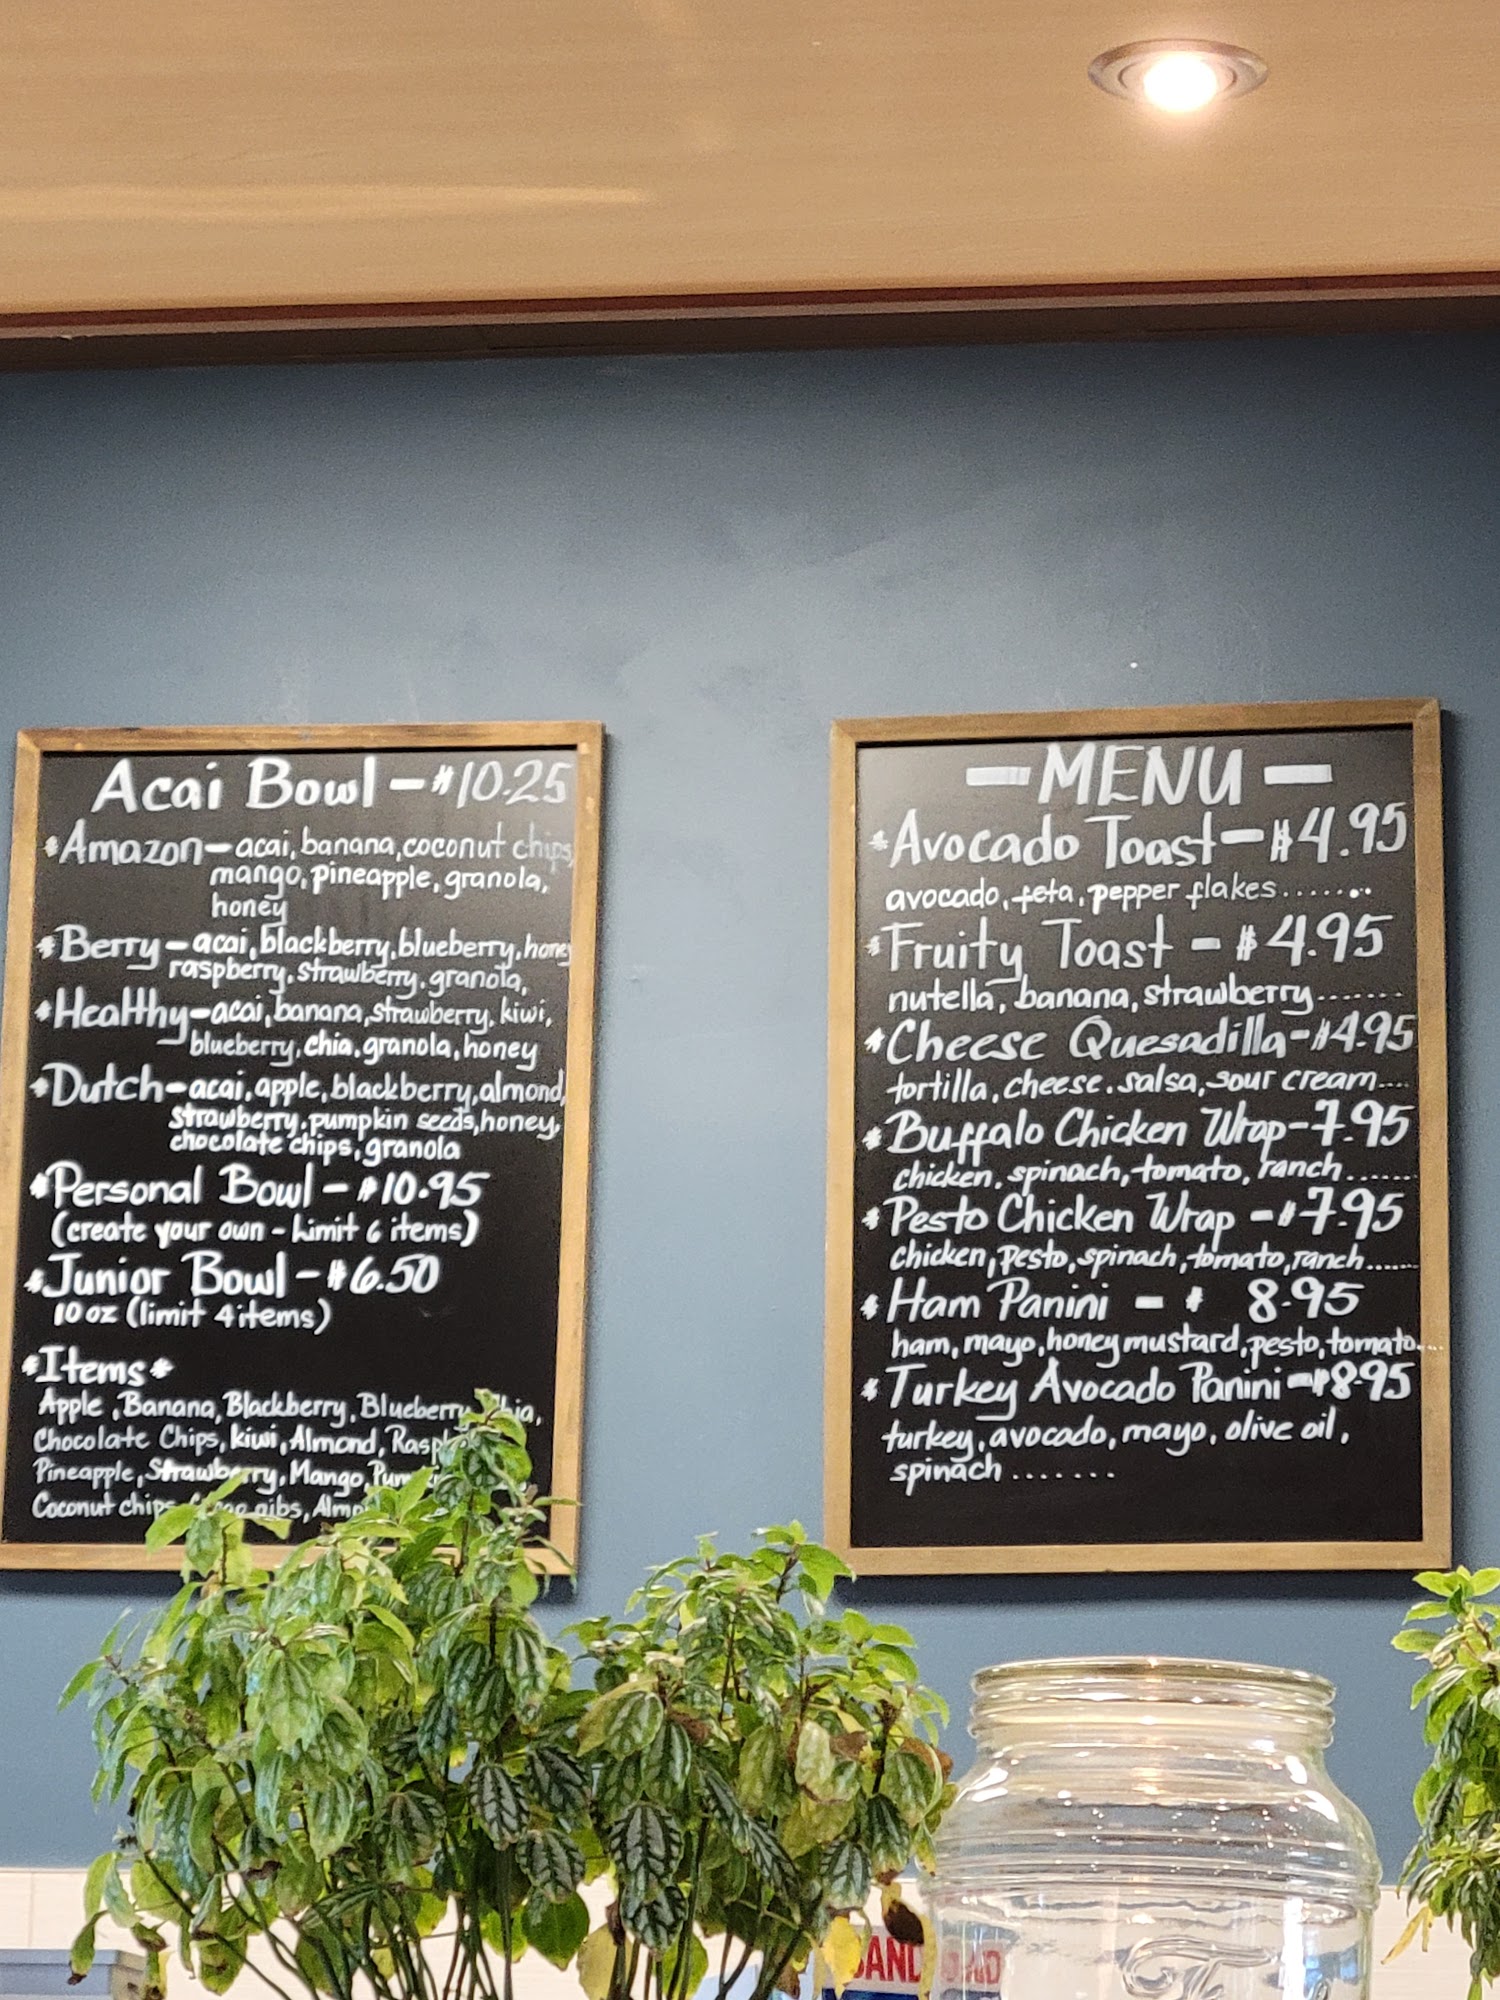 Acai Bowl - $10.25
*Amazon - acai, banana, coconut chips,
mango, pineapple, granola,
honey
*Berry - acai, blackberry, blueberry, honey
raspberry, strawberry, granola,
*Healthy - acai, banana, strawberry, kiwi,
blueberry, chia, granola, honey
*Dutch - acai, apple, blackberry, almond,
strawberry, pumpkin seeds, honey,
chocolate chips, granola
*Personal Bowl - $10.95
(create your own - Limit 6 items)
*Junior Bowl - $6.50
10 oz (limit 4 items)
*Items*
Apple, Banana, Blackberry, Blueberry, Chia,
Chocolate Chips, kiwi, Almond,
Pineapple, Strawberry, Mango,
Coconut chips,
- MENU -
*Avocado Toast - $4.95
avocado, feta, pepper flakes.......
*Fruity Toast - $4.95
nutella, banana, strawberry.......
*Cheese Quesadilla - $4.95
tortilla, cheese. salsa, sour cream....
*Buffalo Chicken Wrap - 7.95
chicken, spinach, tomato, ranch.......
*Pesto Chicken Wrap - $7.95
chicken, pesto, spinach, tomato, ranch.......
*Ham Panini - $ 8.95
ham, mayo, honey mustard, pesto, tomato....
*Turkey Avocado Panini - $8.95
turkey, avocado, mayo, olive oil,
spinach .......